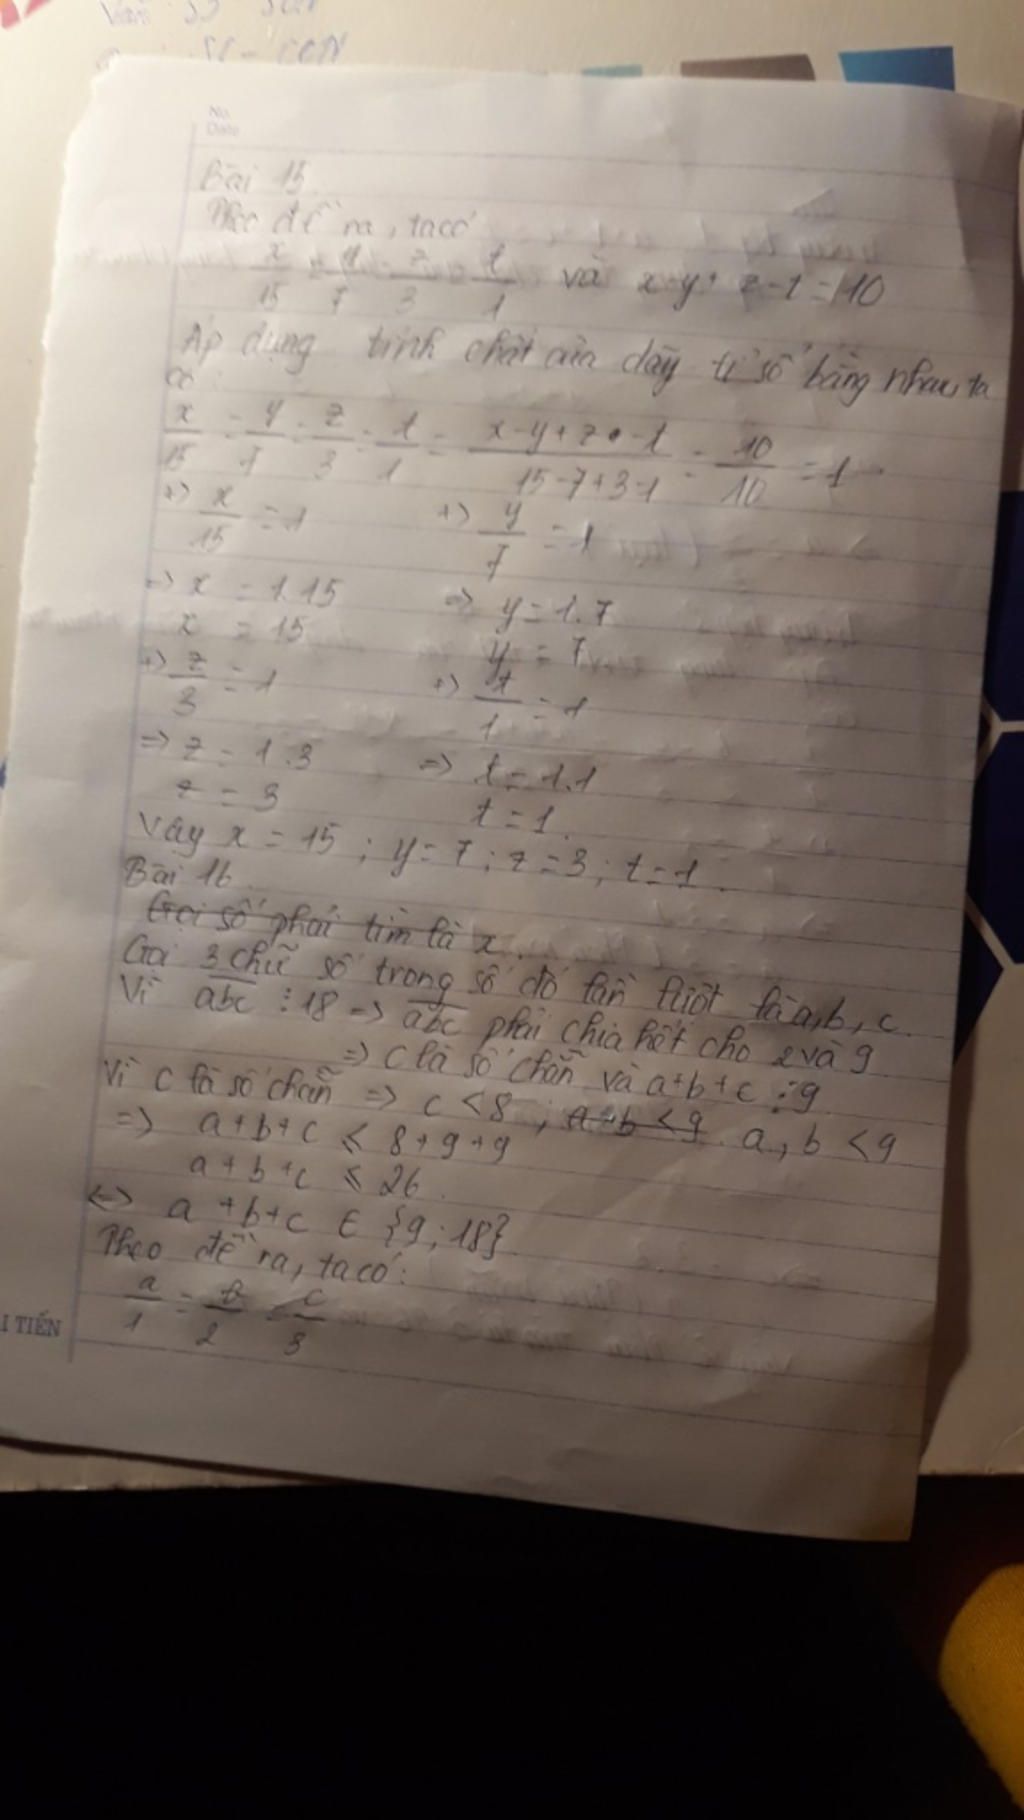 Văn
No.
Date
Bài 15.
Theo đề ra, ta có
x/15 = y/7 = z/3 = t/1 và x-y+z-t=10
Áp dụng tính chất của dãy tỉ số bằng nhau, ta
có:
x/15 = y/7 = z/3 = t/1 = x-y+z-t/15-7+3-1 = 10/10 = 1
+) x/15 = 1 +) y/7 = 1
=> x = 1.15 => y = 1.7
x = 15 y = 7
+) z/3 = 1 +) t/1 = 1
=> z = 1.3 => t = 1.1
z = 3 t = 1.
Vậy x = 15 ; y = 7 ; z = 3 ; t = 1.
Bài 16.
Gọi số phải tìm là x.
Gọi 3 chữ số trong số đó lần lượt là a, b, c.
Vì abc ⋮ 18 => abc phải chia hết cho 2 và 9
=> c là số chẵn và a+b+c ⋮ 9
Vì c là số chẵn => c < 8 ; a+b < 9 a, b < 9
=> a+b+c ≤ 8+9+9
a+b+c ≤ 26.
<=> a+b+c ∈ {9; 18}
Theo đề ra, ta có:
a/1 = b/2 = c/3
I TIẾN